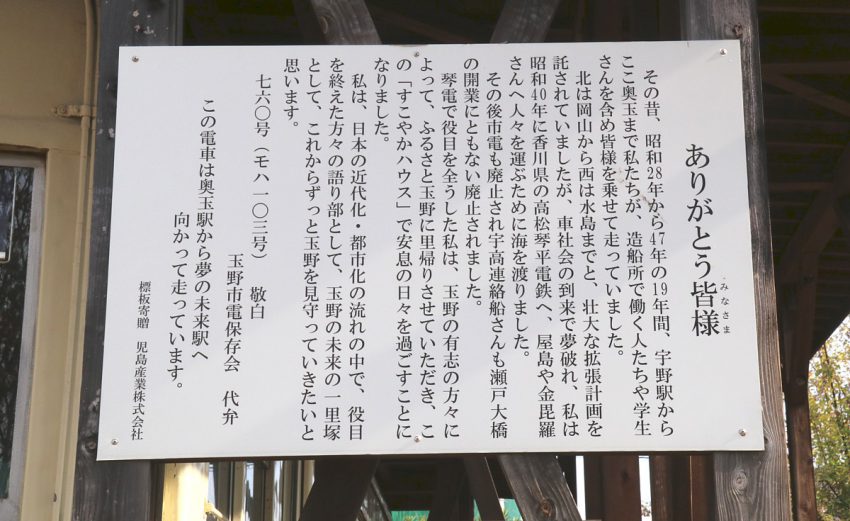 ありがとう皆様
みなさま
その昔、昭和28年から47年の19年間、宇野駅から
ここ奥玉まで私たちが、造船所で働く人たちや学生
さんを含め皆様を乗せて走っていました。
北は岡山から西は水島までと、壮大な拡張計画を
託されていましたが、車社会の到来で夢破れ、私は
昭和40年に香川県の高松琴平電鉄へ、屋島や金毘羅
さんへ人々を運ぶために海を渡りました。
その後市電も廃止され宇高連絡船さんも瀬戸大橋
の開業にともない廃止されました。
琴電で役目を全うした私は、玉野の有志の方々に
よって、ふるさと玉野に里帰りさせていただき、こ
の「すこやかハウス」で安息の日々を過ごすことに
なりました。
私は、日本の近代化・都市化の流れの中で、役目
を終えた方々の語り部として、玉野の未来の一里塚
として、これからずっと玉野を見守っていきたいと
思います。
七六〇号（モハ一〇三号） 敬白
玉野市電保存会 代弁
この電車は奥玉駅から夢の未来駅へ
向かって走っています。
標板寄贈 児島産業株式会社